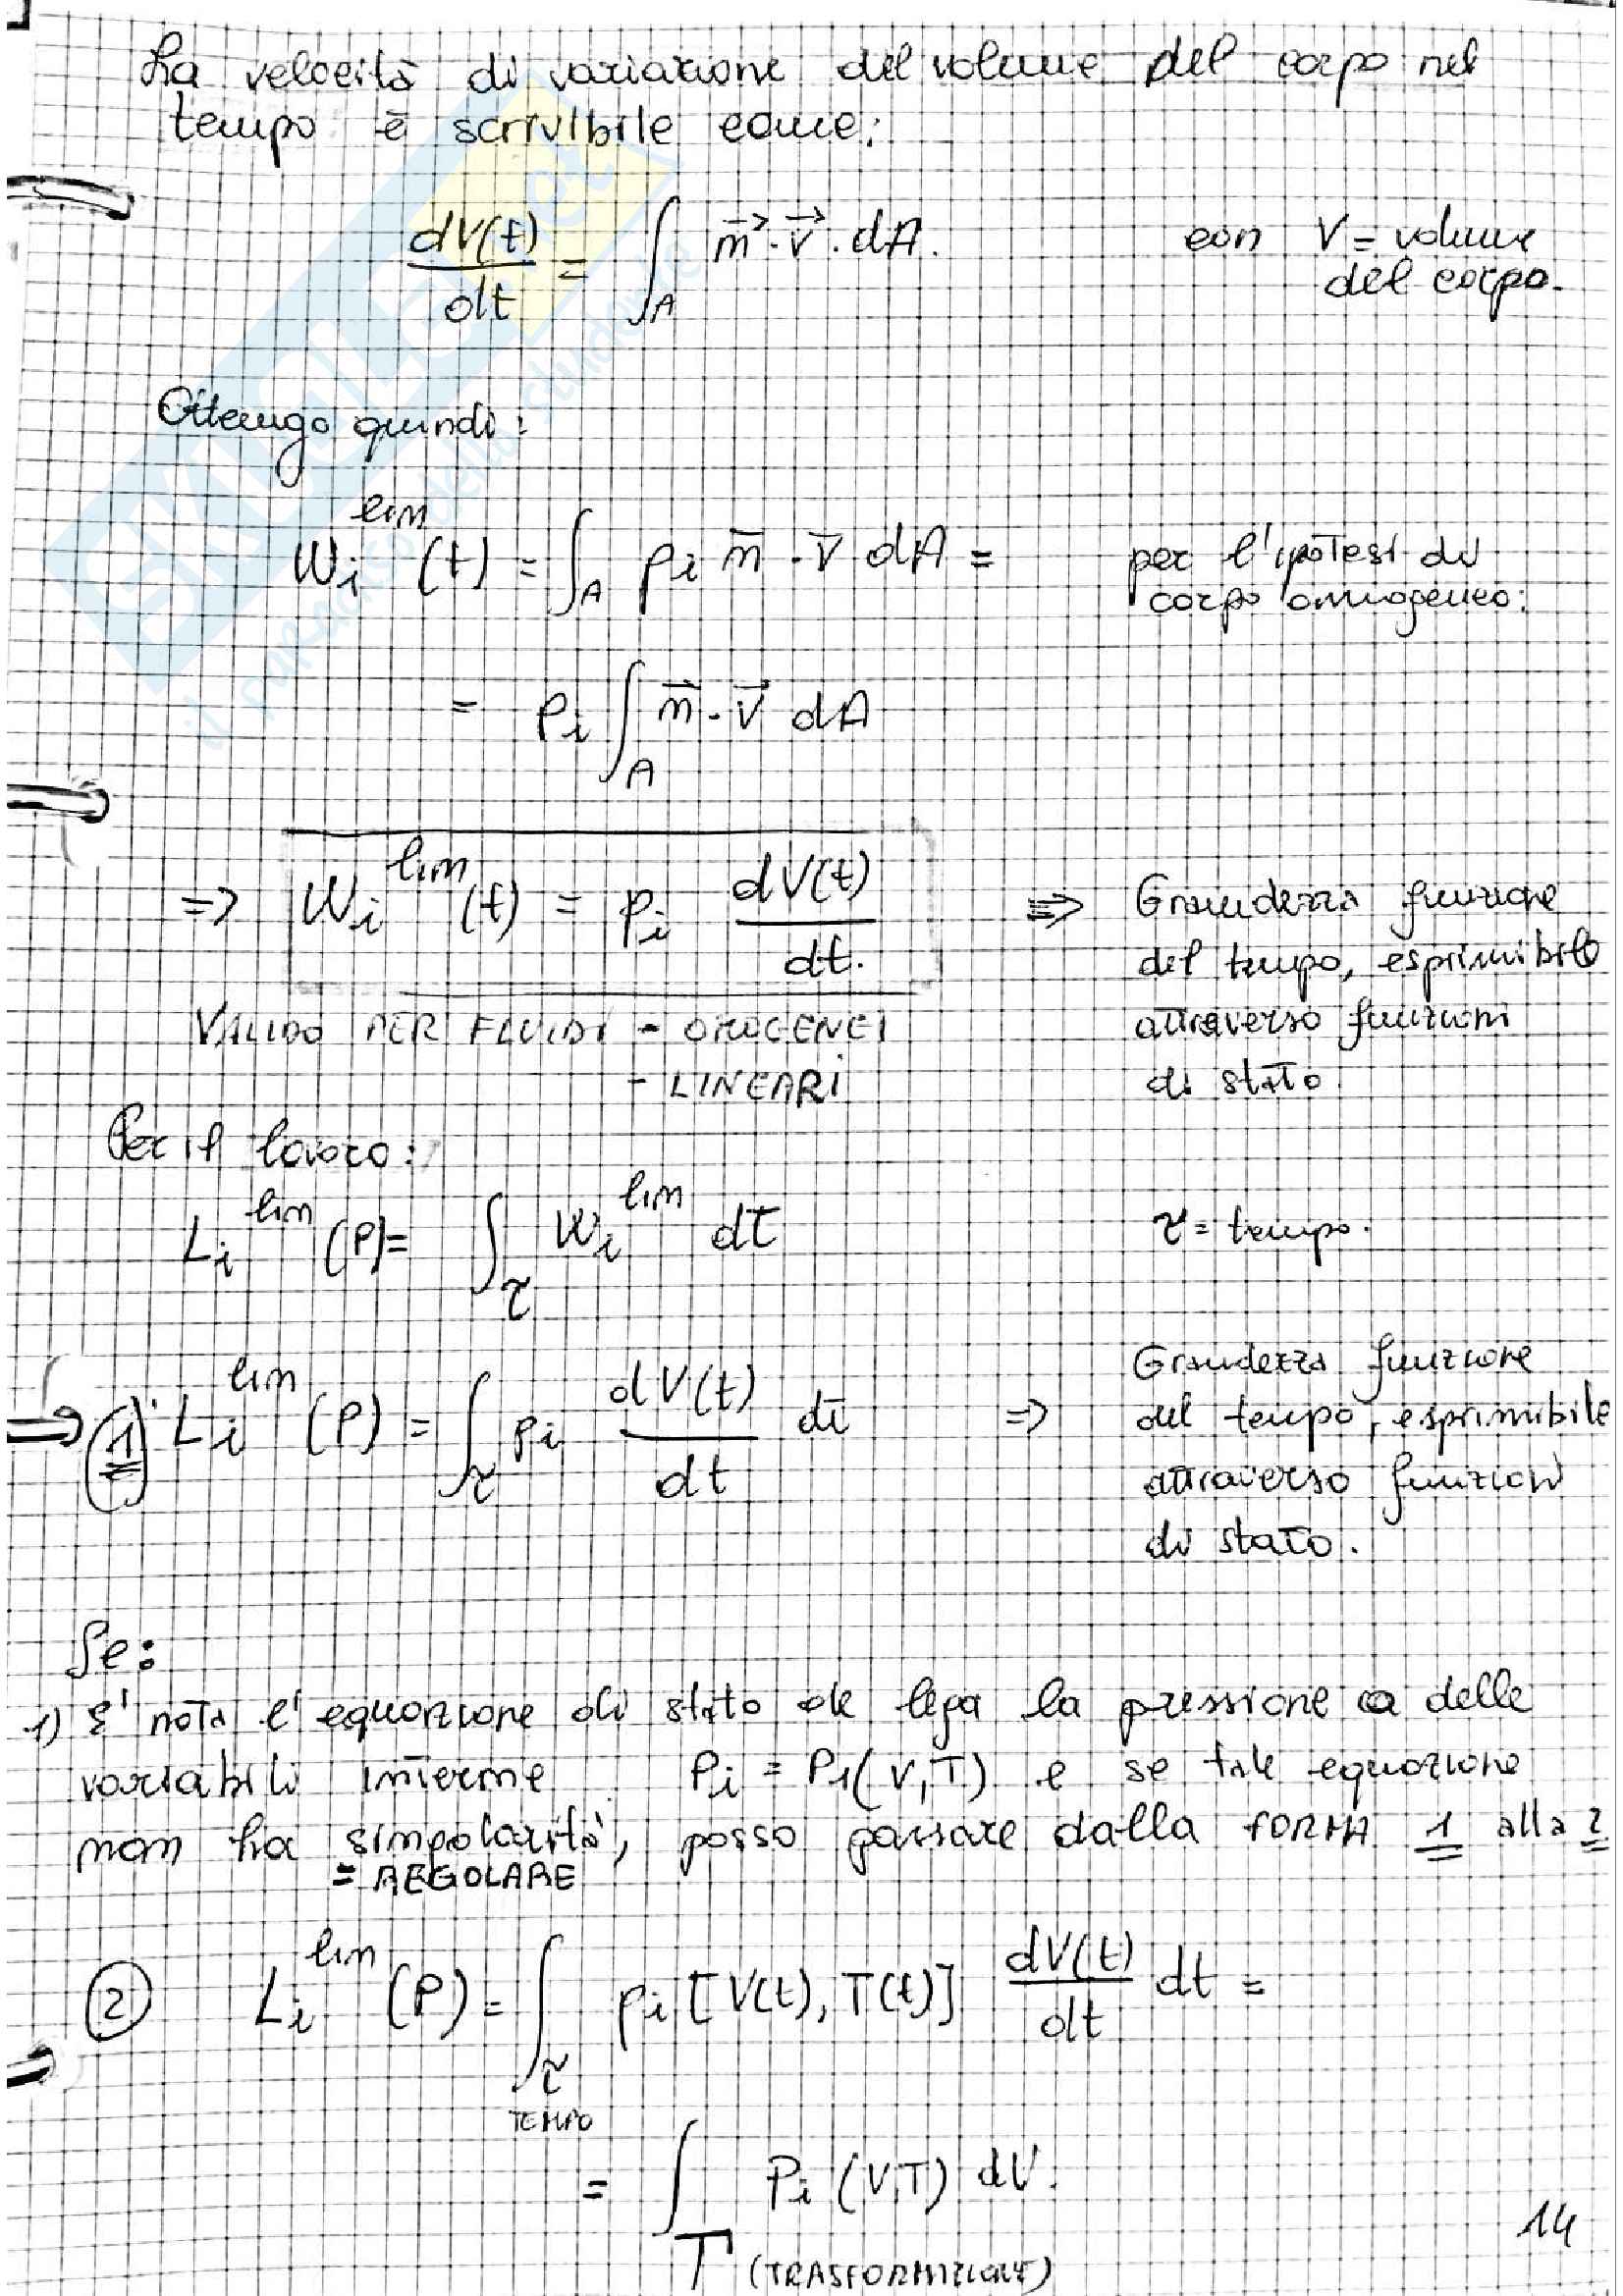 La velocità di variazione del volume del corpo nel
tempo è scrivibile come:
dV(t)/dt = ∫_A n⃗ · v⃗ · dA. con V = volume
del corpo.
Ottengo quindi:
W_i^lim (t) = ∫_A p_i n̄ · v̄ dA = per l'ipotesi di
corpo omogeneo:
= p_i ∫_A n⃗ · v⃗ dA
=> W_i^lim (t) = p_i dV(t)/dt. => Grandezza funzione
del tempo, esprimibile
VALIDO PER FLUIDI - OMOGENEI attraverso funzioni
- LINEARI di stato
Per il lavoro:
L_i^lim (P) = ∫_τ W_i^lim dt τ = tempo.
=> 1) L_i^lim (P) = ∫_τ p_i dV(t)/dt dt => Grandezza funzione
del tempo, esprimibile
attraverso funzioni
di stato.
Se:
1) E' nota l'equazione di stato che lega la pressione a delle
variabili interne P_i = P_i(V,T) e se tale equazione
non ha singolarità, posso passare dalla FORMA 1 alla 2
= REGOLARE
2 L_i^lim (P) = ∫_τ p_i [V(t), T(t)] dV(t)/dt dt =
TEMPO
= ∫_T P_i (V,T) dV.
(TRASFORMAZIONE)
14
SKUOLA.net
il paradiso dello studente